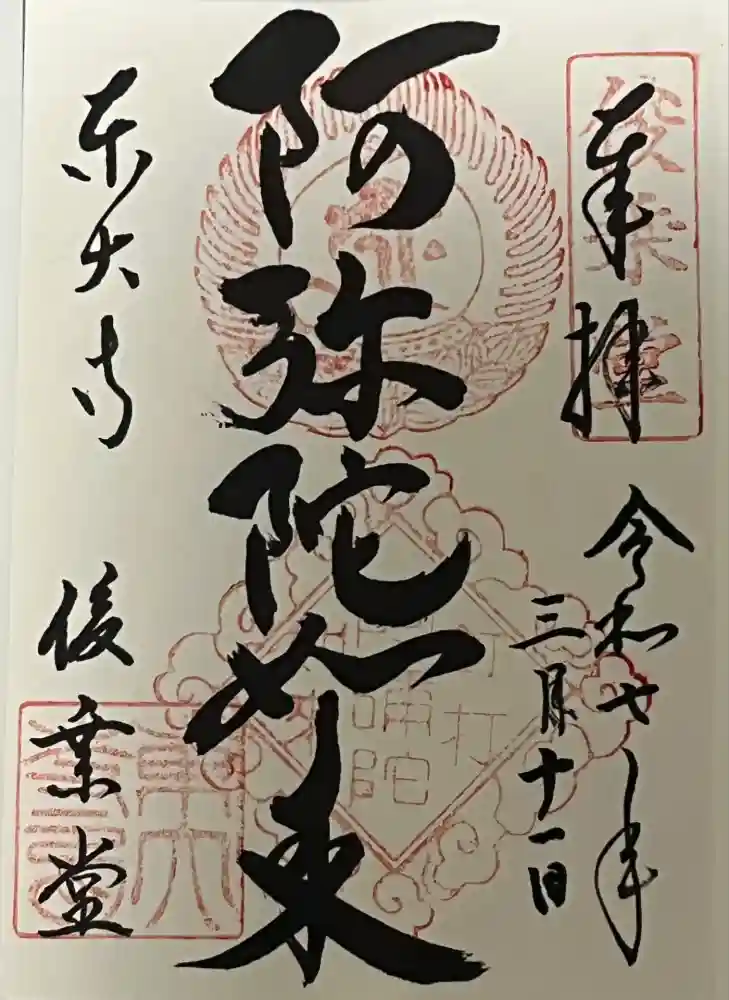 奉拝
俊乗堂
令和七年
三月十一日
阿弥陀如来
東大寺 俊乗堂